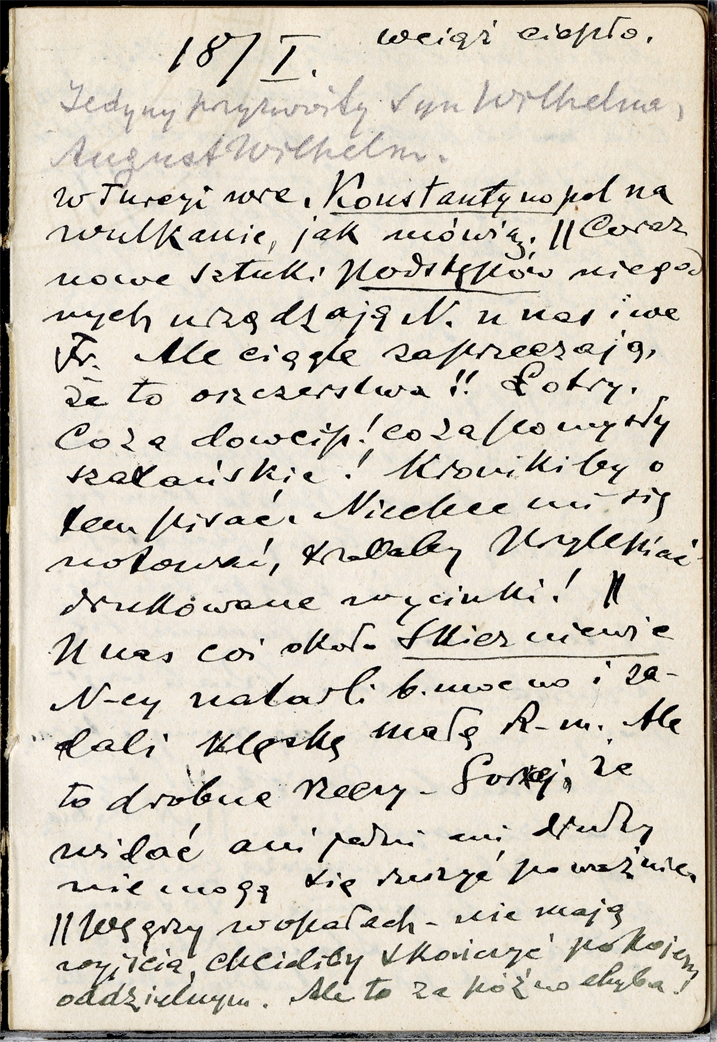 18/I. wciąż ciepło.
Jedyny przyzwoity Syn Wilhelma,
August Wilhelm.
w Turcyi wre. Konstantynopol na
wulkanie, jak mówią. || Coraz
nowe sztuki podstępów niegod
nych urządzają N. u nas i we
Fr. Ale ciągle zaprzeczają,
że to oszczerstwa!! Łotry.
Co za dowcip! co za pomysły
szatańskie! Kroniki by o
tem pisać. Nie chce mi się
notować, trzebaby przylepiać
drukowane wycinki! ||
U nas coś około Skierniewic
N-cy natarli b. mocno i za-
dali klęskę małą R-m. Ale
to drobne rzeczy - Gorzej, że
widać ani jedni ani drudzy
nie mogą się ruszyć poważnie.
|| Węgrzy w opałach - nie mają
wyjścia, chcieliby skończyć pokojem
oddzielnym. Ale to za późno chyba!